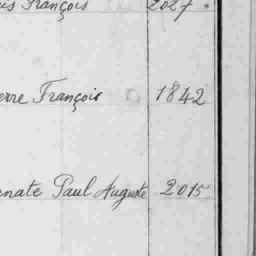 François 2027
François 1842
Paul Auguste 2015